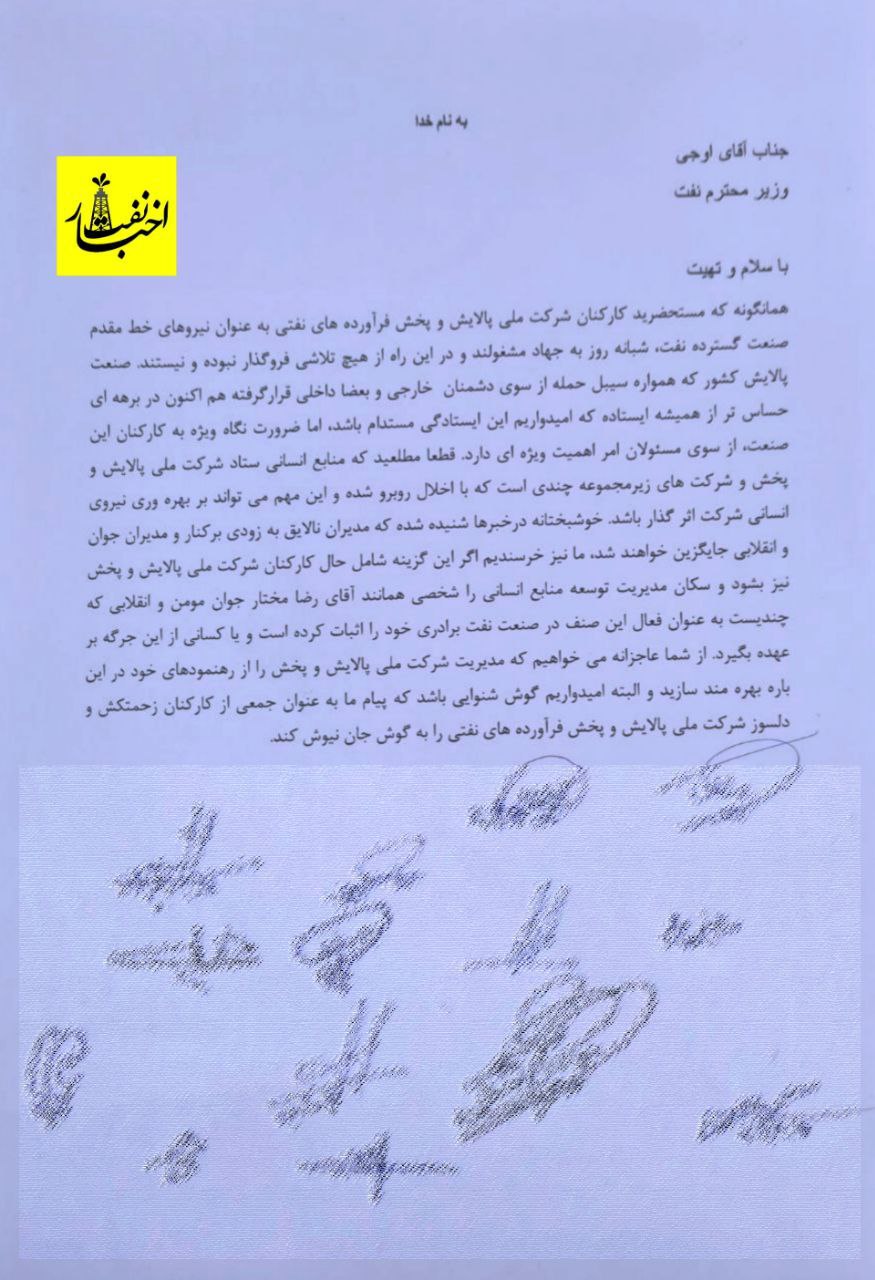 به نام خدا
جناب آقای اوجی
وزیر محترم نفت
اخبار نفت
با سلام و تهیت
همانگونه که مستحضرید کارکنان شرکت ملی پالایش و پخش فرآورده های نفتی به عنوان نیروهای خط مقدم
صنعت گسترده نفت، شبانه روز به جهاد مشغولند و در این راه از هیچ تلاشی فروگذار نبوده و نیستند. صنعت
پالایش کشور که همواره سیبل حمله از سوی دشمنان خارجی و بعضا داخلی قرارگرفته هم اکنون در برهه ای
حساس تر از همیشه ایستاده که امیدواریم این ایستادگی مستدام باشد، اما ضرورت نگاه ویژه به کارکنان این
صنعت، از سوی مسئولان امر اهمیت ویژه ای دارد. قطعا مطلعید که منابع انسانی ستاد شرکت ملی پالایش و
پخش و شرکت های زیرمجموعه چندی است که با اخلال روبرو شده و این مهم می تواند بر بهره وری نیروی
انسانی شرکت اثر گذار باشد. خوشبختانه درخبرها شنیده شده که مدیران نالایق به زودی برکنار و مدیران جوان
و انقلابی جایگزین خواهند شد، ما نیز خرسندیم اگر این گزینه شامل حال کارکنان شرکت ملی پالایش و پخش
نیز بشود و سکان مدیریت توسعه منابع انسانی را شخصی همانند آقای رضا مختار جوان مومن و انقلابی که
چندیست به عنوان فعال این صنف در صنعت نفت برادری خود را اثبات کرده است و یا کسانی از این جرگه بر
عهده بگیرد. از شما عاجزانه می خواهیم که مدیریت شرکت ملی پالایش و پخش را از رهنمودهای خود در این
باره بهره مند سازید و البته امیدواریم گوش شنوایی باشد که پیام ما به عنوان جمعی از کارکنان زحمتکش و
دلسوز شرکت ملی پالایش و پخش فرآورده های نفتی را به گوش جان نیوش کند.